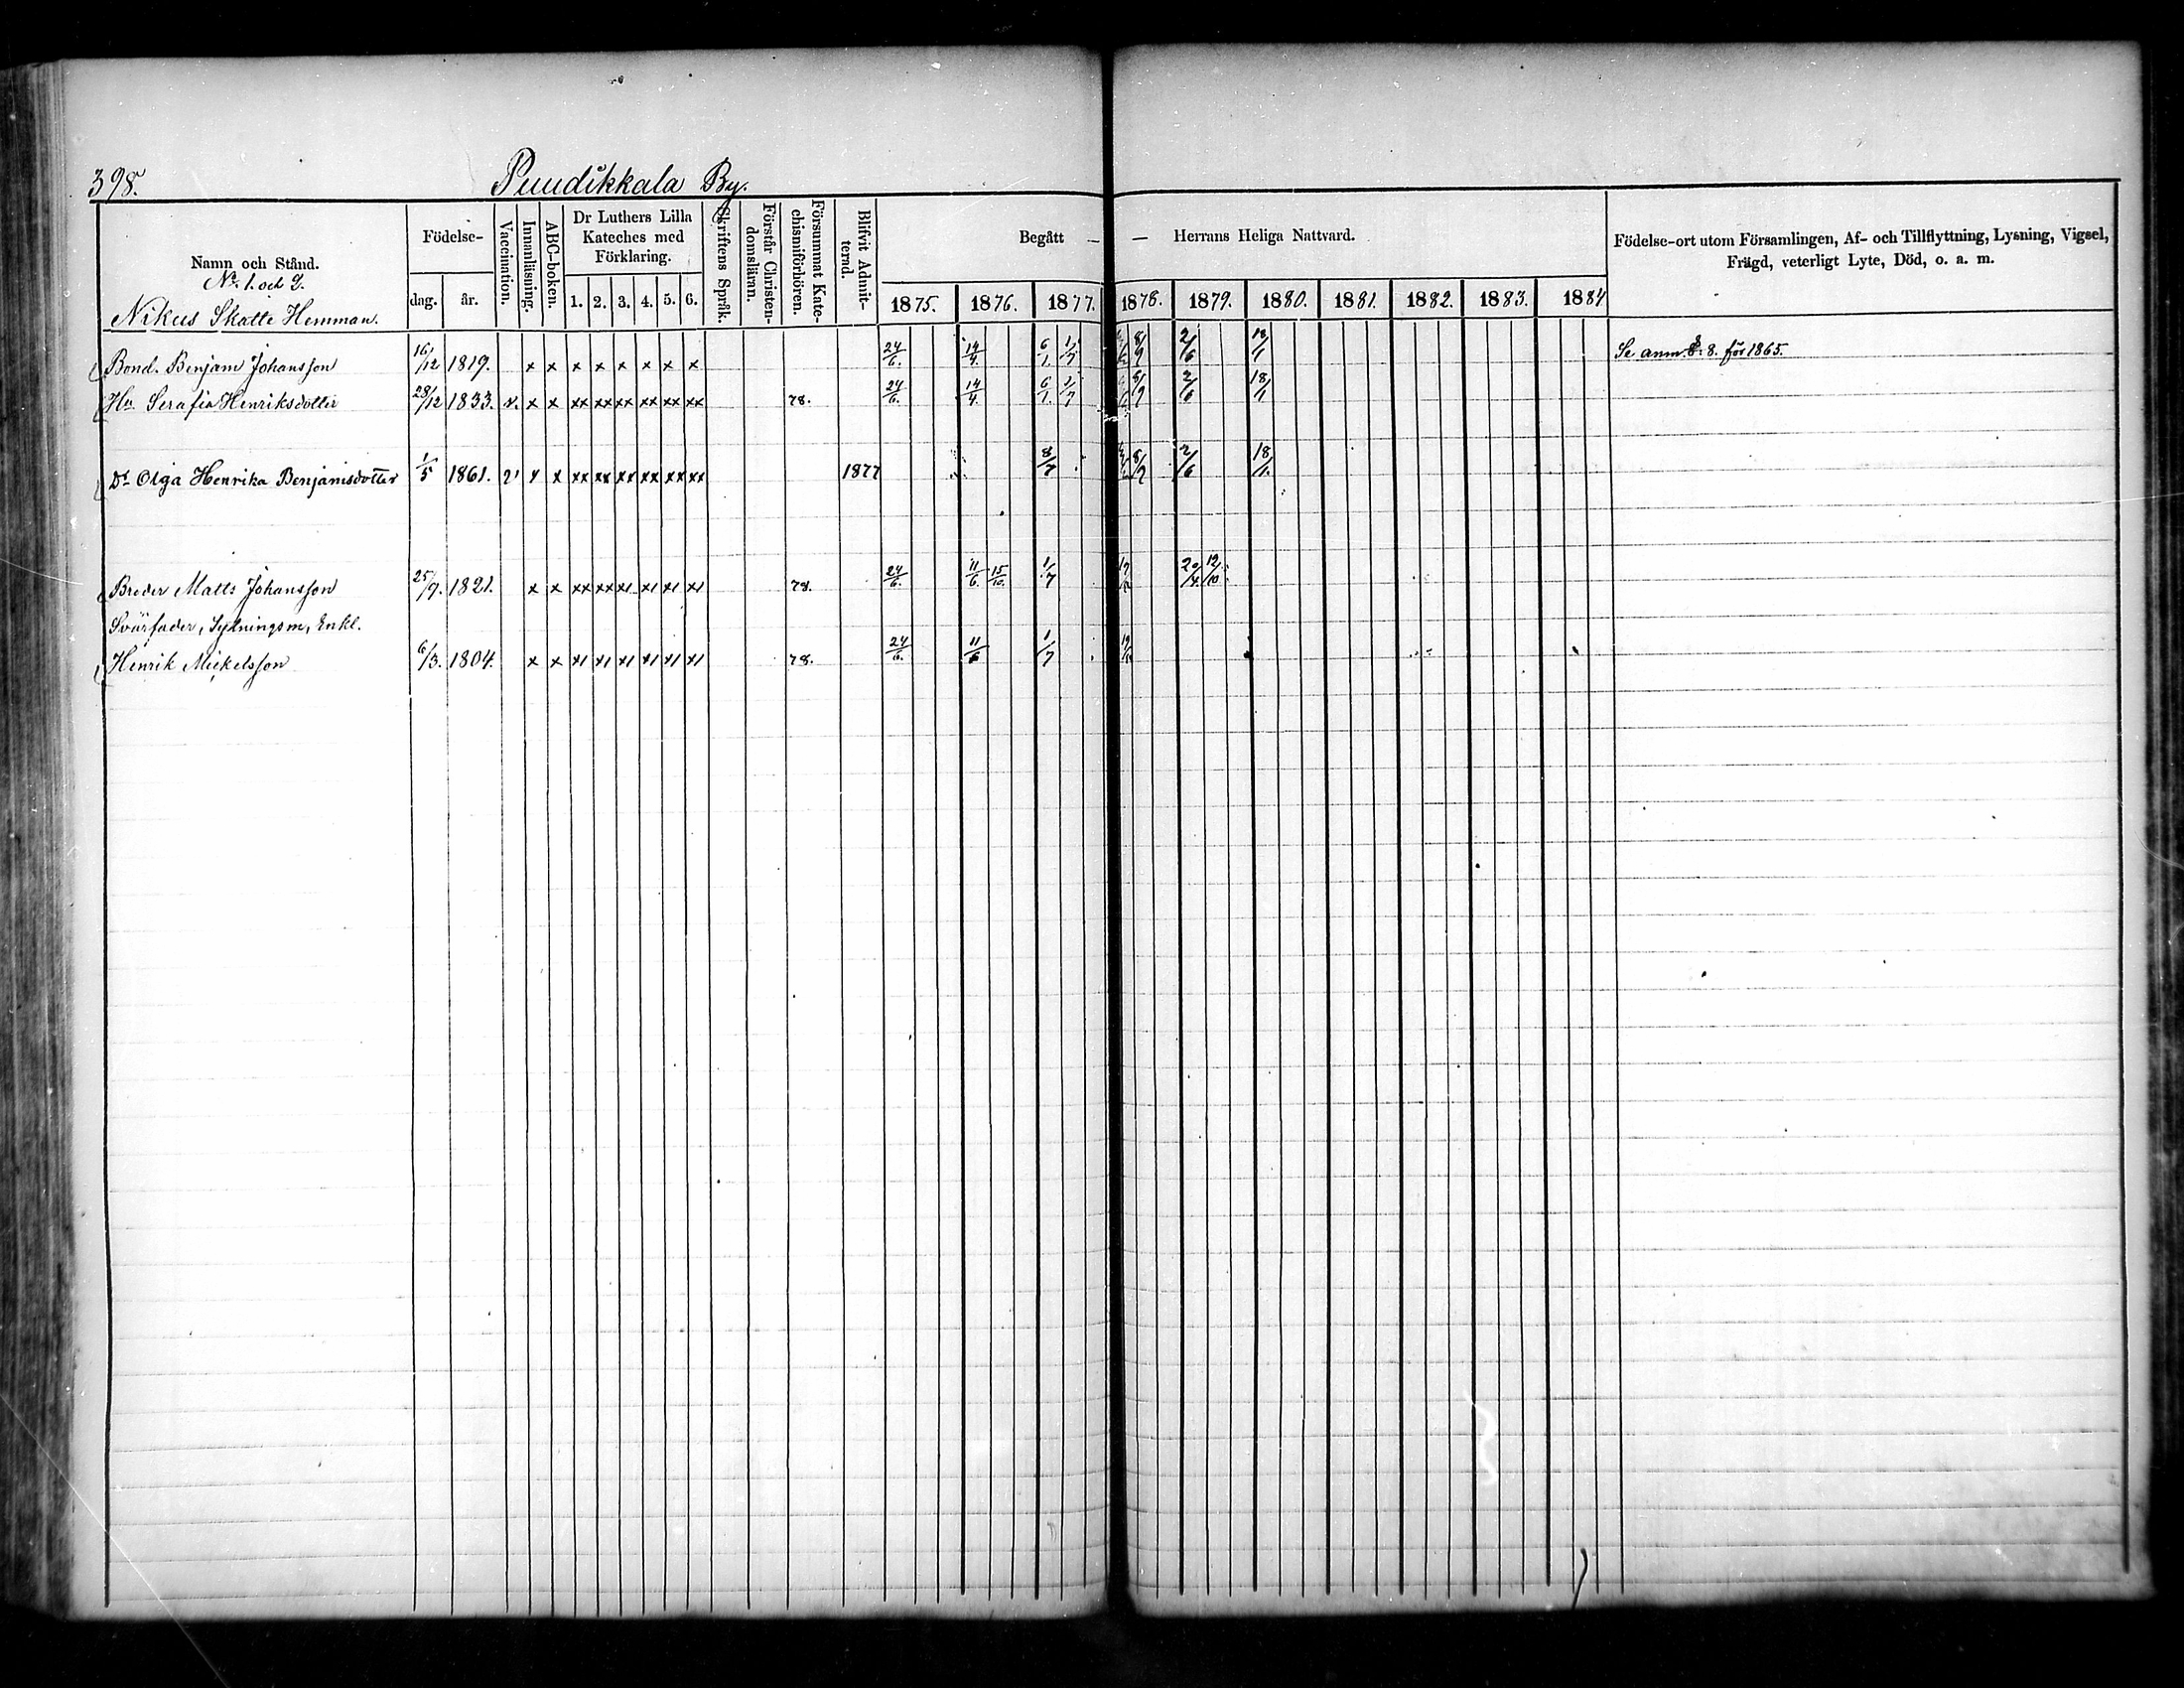 398.
Puudikkala By.
Namn och Stånd.
No 1. och 2.
Nikus Skatte Hemman.
Födelse-
dag. år.
Vaccination.
Innanläsning.
ABC-boken.
Dr Luthers Lilla Kateches med Förklaring.
1. 2. 3. 4. 5. 6.
Skriftens Språk.
Förstår Christendomsläran.
Försummat Katechismiförhören.
Blifvit Admitterad.
Begått — — Herrans Heliga Nattvard.
1875. 1876. 1877. 1878. 1879. 1880. 1881. 1882. 1883. 1884
Födelse-ort utom Församlingen, Af- och Tillflyttning, Lysning, Vigsel,
Frägd, veterligt Lyte, Död, o. a. m.
Bond. Benjam Johansson 16/12 1819. x x x x x x x x 24/6. 14/4. 6/1 1/7 8/9 2/6 18/1 Se anm. 8. för 1865.
Hu Serafia Henriksdotter 28/12 1833. v. x x xx xx xx xx xx xx 78. 24/6. 14/4. 6/1. 1/7 8/9 2/6 18/1
Dr Olga Henrika Benjamsdotter 1/5 1861. v x x xx xx xx xx xx xx 1877 8/7 8/9 2/6 18/1.
Broder Matts Johansson 25/9. 1821. x x xx xx x/ x/ x/ x/ 78. 24/6. 11/6 15/10. 1/7 12/10
Svärfader, Sytningsm, Enkl.
Henrik Mickelsson 6/3. 1804. x x x/ x/ x/ x/ x/ x/ 78. 24/6. 11/6 1/7